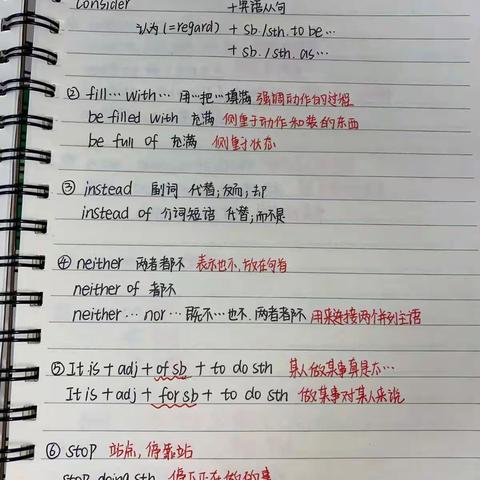 consider +宾语从句
认为(=regard) + sb./sth. to be…
+ sb./sth. as…
② fill…with… 用…把…填满 强调动作的过程
be filled with 充满 侧重于动作和装的东西
be full of 充满 侧重于状态
③ instead 副词 代替;反而;却
instead of 介词短语 代替;而不是
④ neither 两者都不 表示也不,放在句首
neither of 都不
neither…nor… 既不…也不.两者都不 用来连接两个并列主语
⑤ It is + adj + of sb + to do sth 某人做某事真是太…
It is + adj + for sb + to do sth 做某事对某人来说
⑥ stop 站点,停靠站
stop doing sth 停下正在做的事